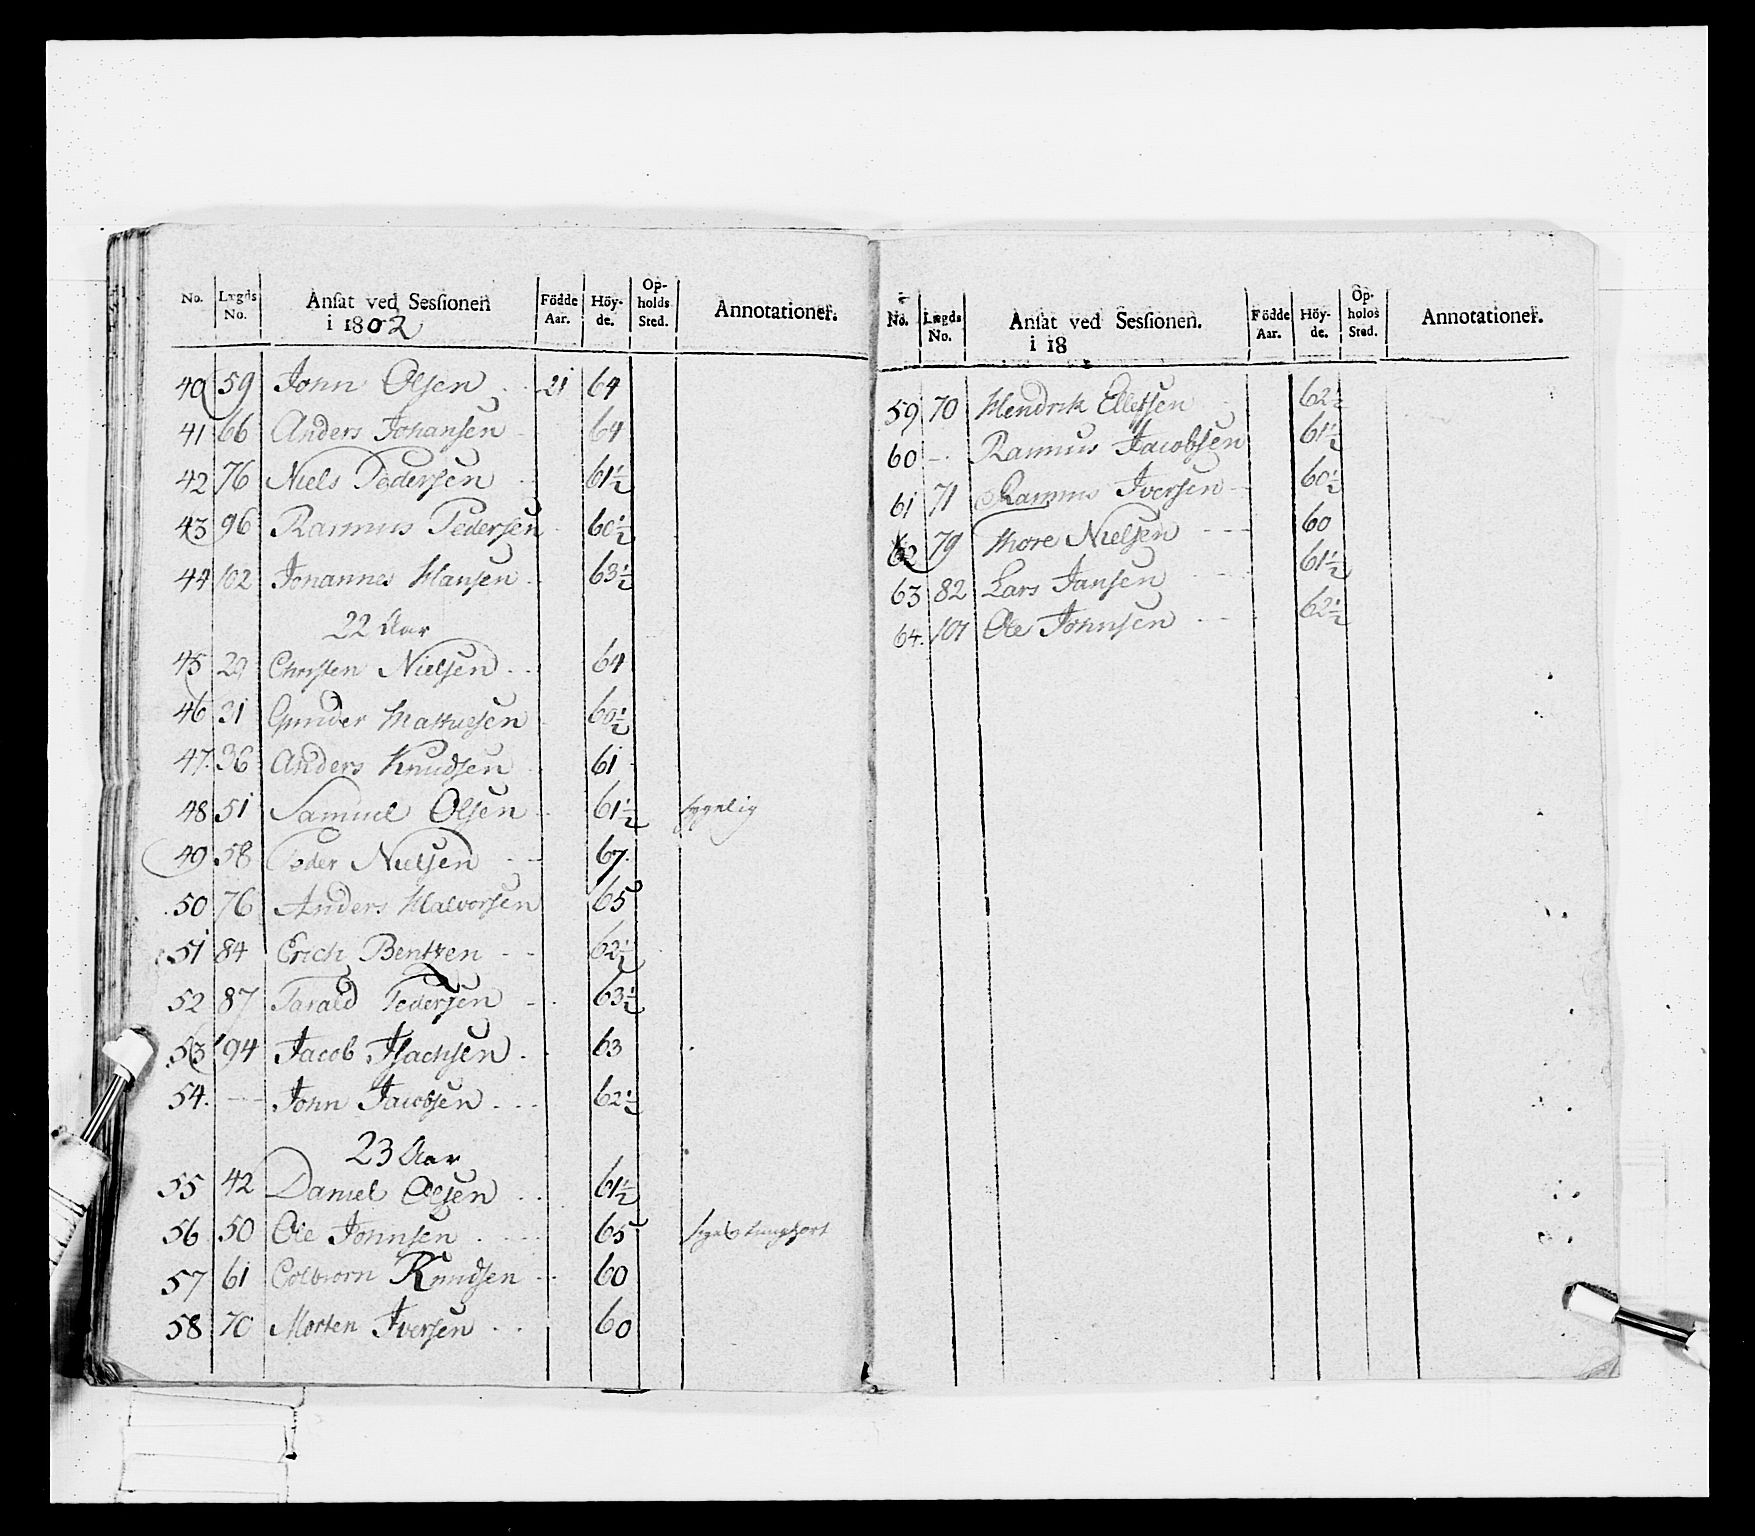 No. Lægds No. Ansat ved Sessionen i 1802 Födde Aar. Höy-de. Op-holds Sted. Annotationer.
40 59 John Olsen 21 64
41 66 Anders Johansen 64
42 76 Niels Pedersen 61½
43 96 Rasmus Pedersen 60½
44 102 Johannes Hansen 63½
22 Aar
45 29 Christen Nielsen 64
46 31 Gunder Mathiesen 60½
47. 36 Anders Knudsen 61
48 51 Samuel Olsen 61½ sygelig
49 58 Peder Nielsen 67.
50 76 Anders Halvorsen 65
51 84 Erich Bentsen 62½
52 87 Tarald Pedersen 63½
53 94 Jacob Isachsen 63
54. - - John Jacobsen 62½
23 Aar
55 42 Daniel Olsen 61½
56 50 Ole Johnsen 65
57 61 Colbiorn Knudsen 60
58 70 Morten Iversen 60
No. Lægds No. Ansat ved Sessionen. i 18 Födde Aar. Höy-de. Op-holds Sted. Annotationer.
59 70 Hendrik Ellefsen 62½
60 - Rasmus Jacobsen 61½
61 71 Rasmus Iversen 60½
62 79 Thore Nielsen 60
63 82 Lars Jansen 61½
64. 101 Ole Johnsen 62½